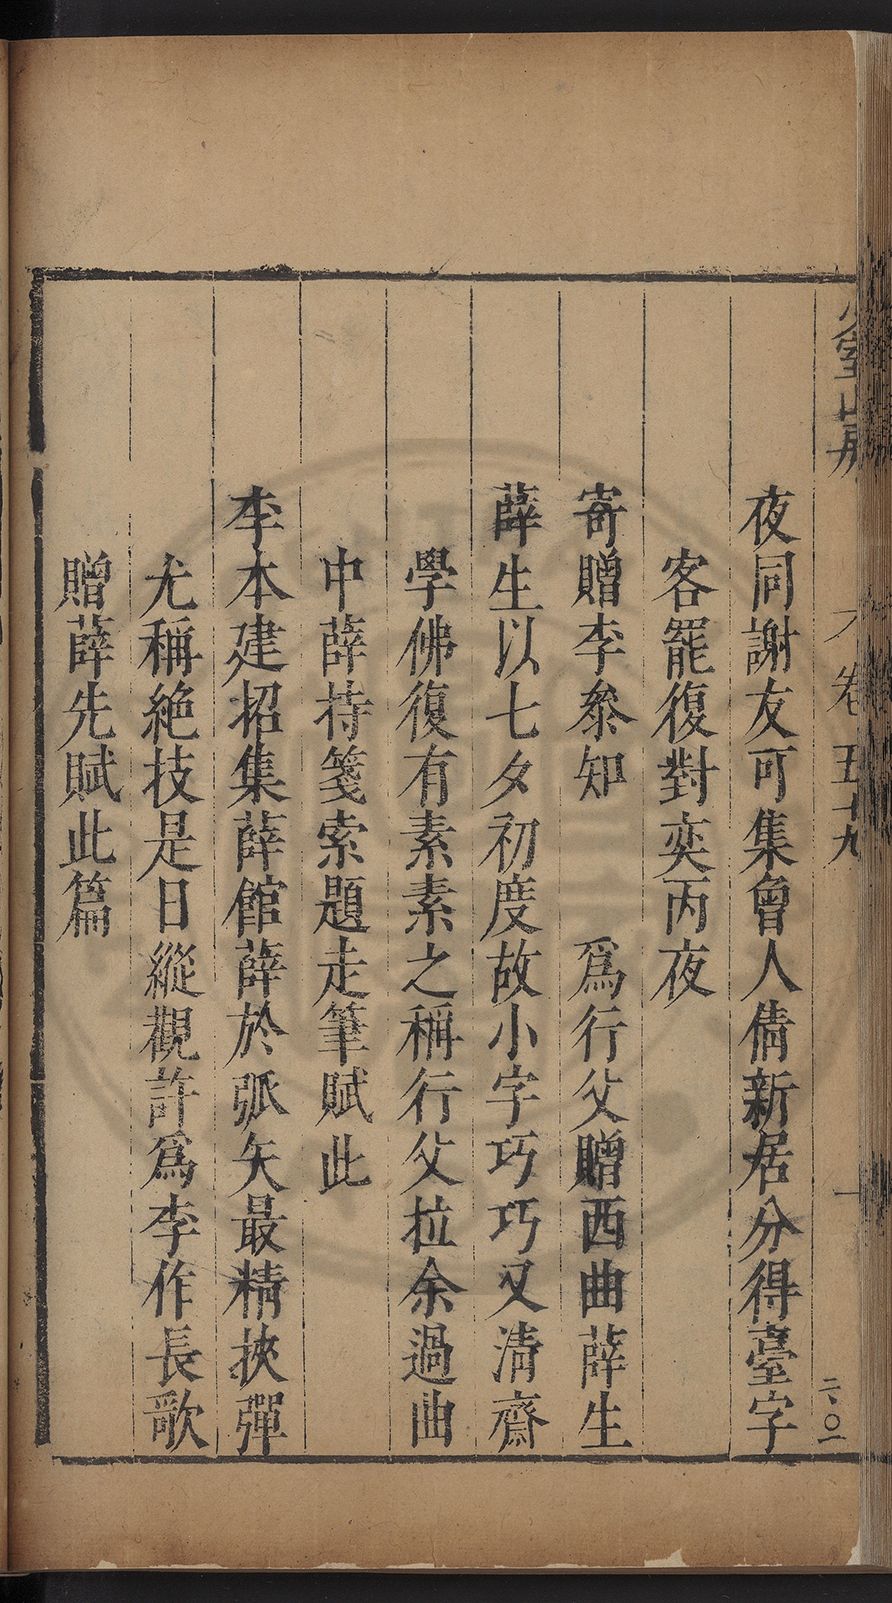 少室山房
卷五十九
一
二〇一
夜同謝友可集曾人倩新居分得臺字
客罷復對奕丙夜
寄贈李叅知　為行父贈西曲薛生
薛生以七夕初度故小字巧巧又清齋
學佛復有素素之稱行父拉余過曲
中薛持箋索題走筆賦此
李本建招集薛館薛於弧矢最精挾彈
尤稱絶技是日縱觀許為李作長歌
贈薛先賦此篇